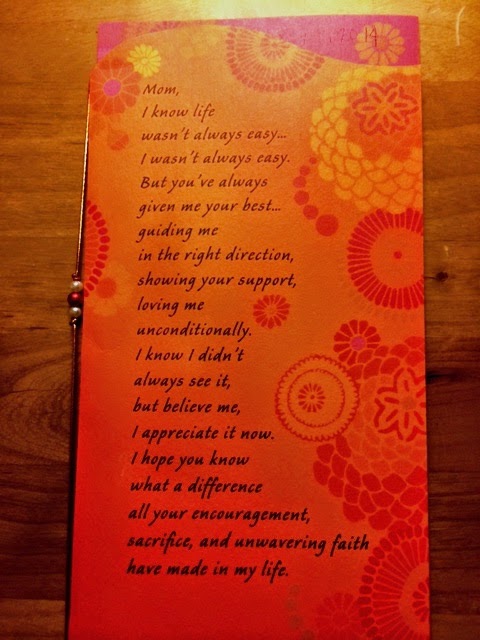 2014
Mom,
I know life
wasn't always easy...
I wasn't always easy.
But you've always
given me your best...
guiding me
in the right direction,
showing your support,
loving me
unconditionally.
I know I didn't
always see it,
but believe me,
I appreciate it now.
I hope you know
what a difference
all your encouragement,
sacrifice, and unwavering faith
have made in my life.